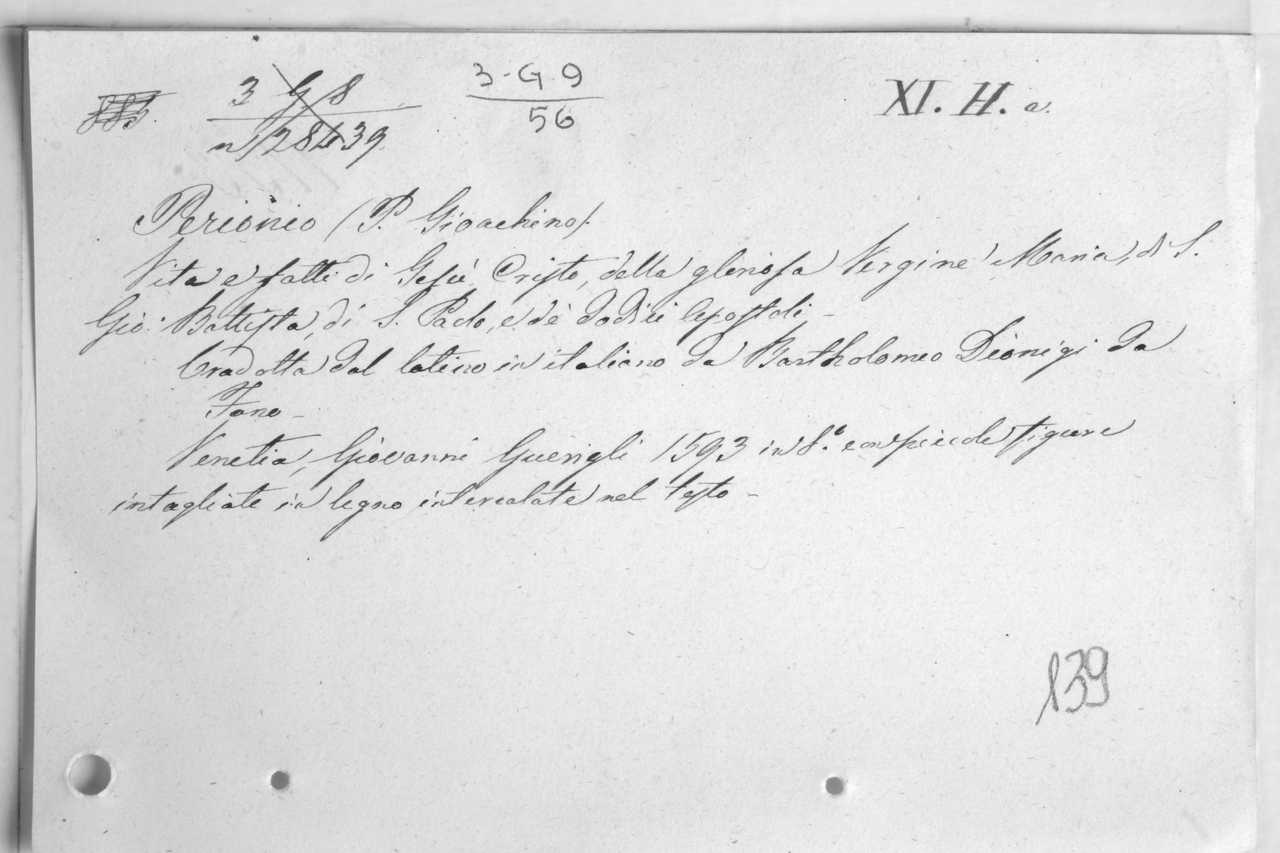 3 G 8 3-G 9 XI. H. a.
n) 28439 56
Perionio (P. Gioachino).
Vita e fatti di Gesù Cristo, della gloriosa Vergine Maria, di S.
Gio: Battista, di S. Paolo, e de dodici Apostoli -
Tradotta dal latino in italiano da Bartholomeo Dionigi da
Fano -
Venetia, Giovanni Guerigli 1593 in 8.º con piccole figure
intagliate in legno intercalate nel testo -
139